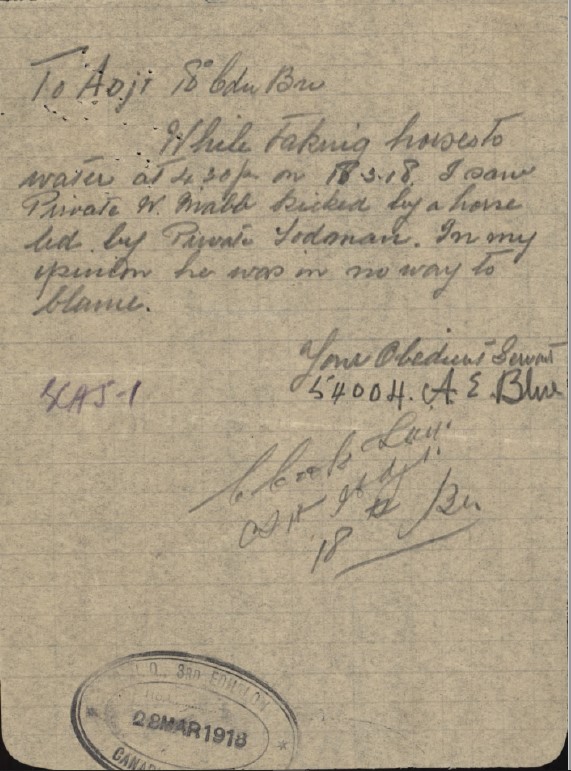 To Adjt 18º Cdn Bn
While taking horses to
water at 4.30 p. on 18.3.18 I saw
Private W. Mabb kicked by a horse
led by Private Lodaman. In my
opinion he was in no way to
blame.
Your Obedient Servant
54004. A E. Blue
Capt
18 Bn
3RD ECHELON
28 MAR 1918